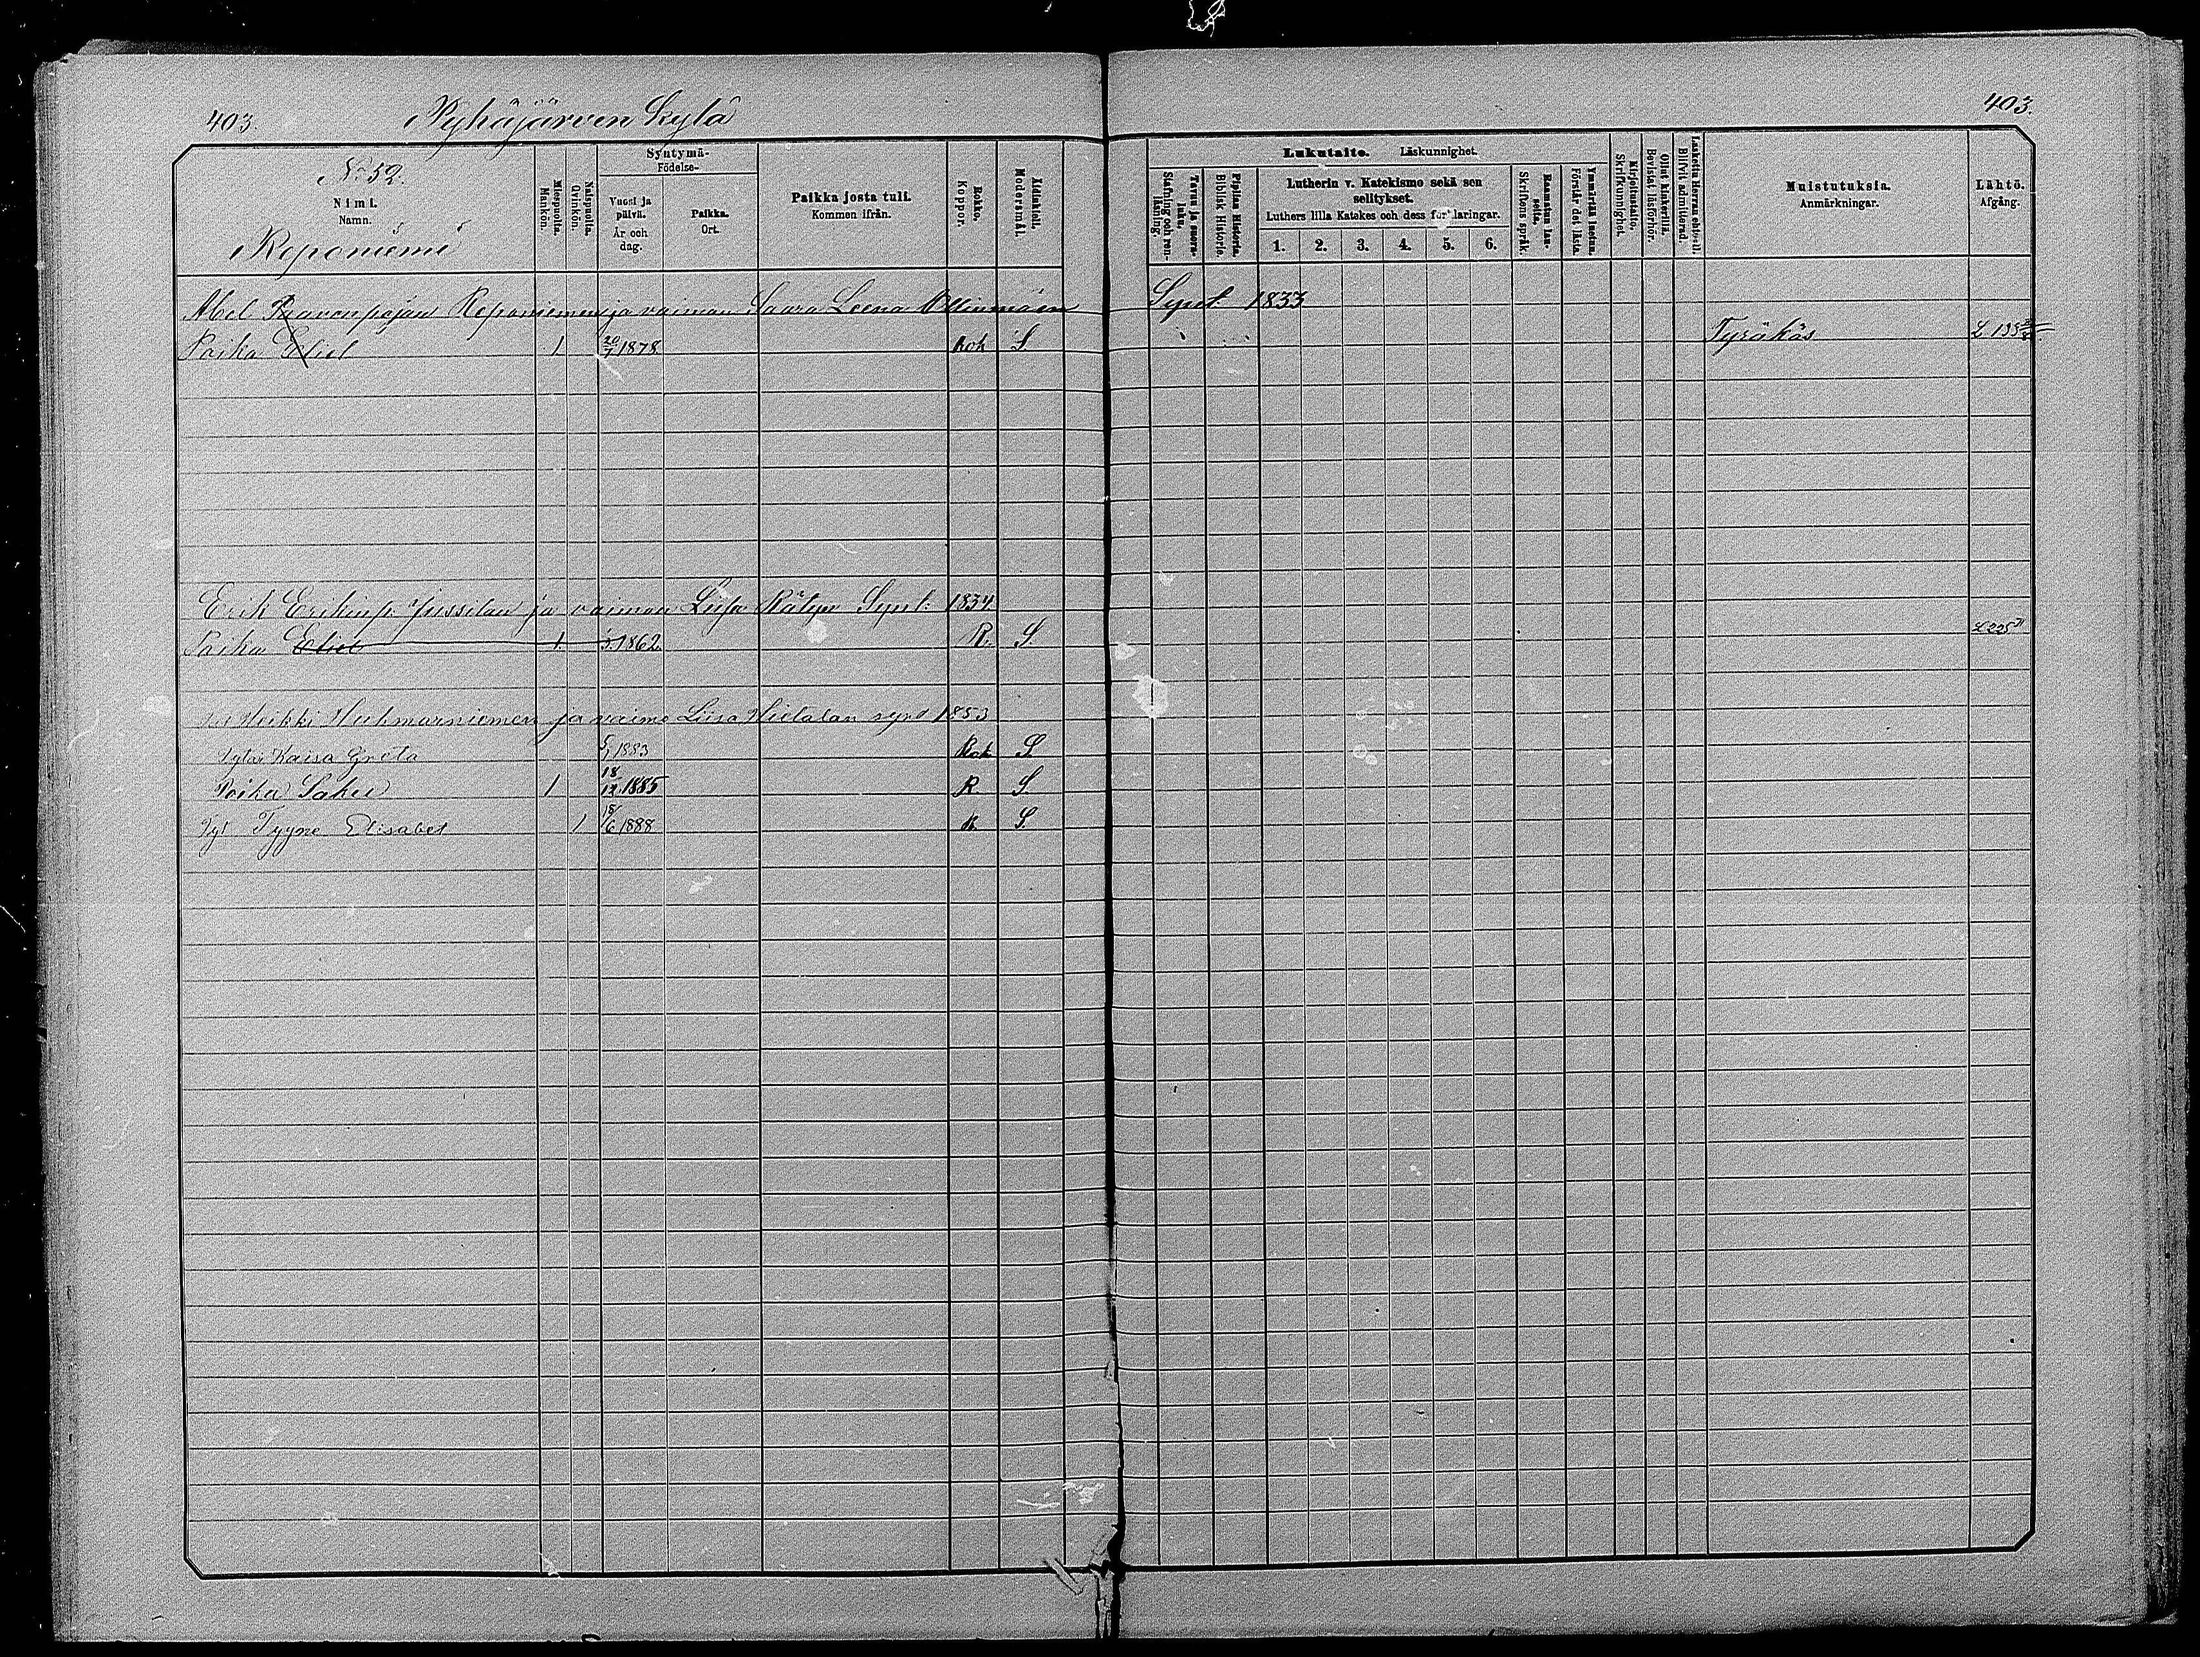 403. Pyhäjärven Kylä 403.
No 52.
Nimi.
Namn.
Reponiemi
Miespuolia. Mankön.
Naispuolia. Qvinkön.
Syntymä-
Födelse-
Vuosi ja päivä. År och dag.
Paikka. Ort.
Paikka josta tuli.
Kommen ifrån.
Rokko. Koppor.
Äidinkieli. Modersmål.
Lukutaito. Läskunnighet.
Tavuu ja suora-luku. Stafning och ren-läsning.
Piplian Historia. Biblisk Historie.
Lutherin v. Katekismo sekä sen selitykset.
Luthers lilla Katekes och dess förklaringar.
1. 2. 3. 4. 5. 6.
Raamatun lauseita. Skriftens språk.
Ymmärtää luetun. Förstår det lästa.
Kirjoitustaito. Skrifkunnighet.
Ollut kinkerillä. Bevistat läsförhör.
Laskettu Herran ehtoll. Blifvit admitterad.
Muistutuksia.
Anmärkningar.
Lähtö.
Afgång.
Abel Paavonpojan Reponiemen ja vaimon Saara Leena Synt. 1833
Poika Eliel 1 20/7 1878 Rok S. Tyräkäs
Erik Erikinp. Jussilan ja vaimon Liisa Rätyn Synt: 1834
Poika Eliel 1. 1862 R. S. L 225
Heikki Huhmarniemen ja vaimo Liisa Hietalan synt 1853
Tytär Kaisa Greta 1883 Rok S.
Poika Saku 1 18/12 1885 R S.
Tyt Tyyne Elisabet 1 18/6 1888 R S.